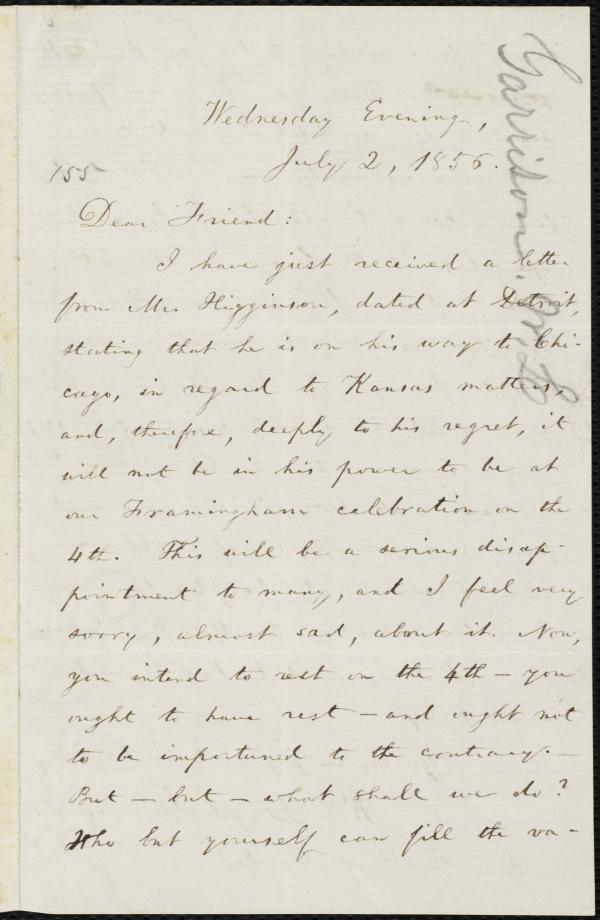 Garrison. W. L.
Wednesday Evening,
July 2, 1856.
155
Dear Friend:
I have just received a letter
from Mr. Higginson, dated at Detroit,
stating that he is on his way to Chi-
cago, in regard to Kansas matters,
and, therefore, deeply to his regret, it
will not be in his power to be at
our Framingham celebration on the
4th. This will be a serious disap-
pointment to many, and I feel very
sorry, almost sad, about it. Now,
you intend to rest on the 4th — you
ought to have rest — and ought not
to be importuned to the contrary. —
But — but — what shall we do?
Who but yourself can fill the va-